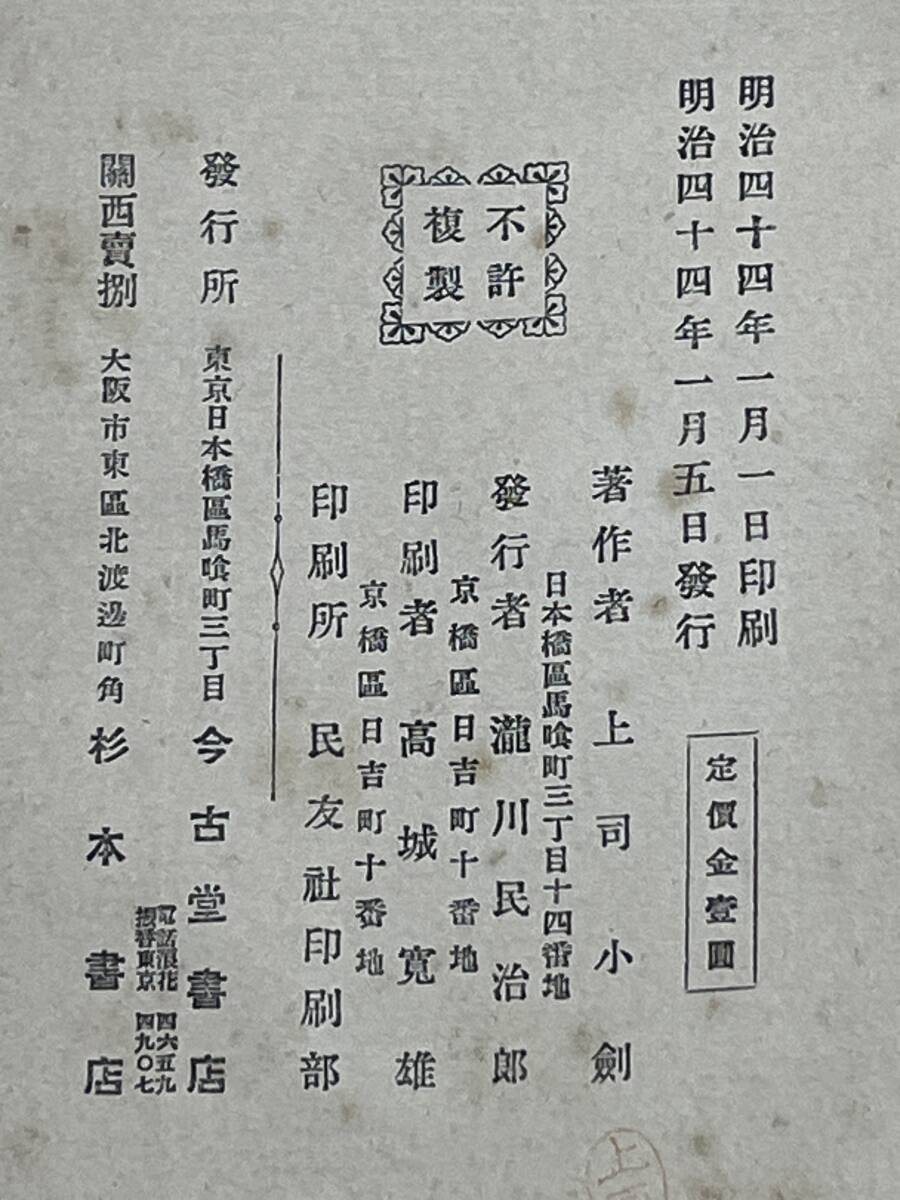 明治四十四年一月一日印刷
明治四十四年一月五日發行
定價金壹圓
不許
複製
著作者 上司小劍
日本橋區馬喰町三丁目十四番地
發行者 瀧川民治郎
京橋區日吉町十番地
印刷者 高城寬雄
京橋區日吉町十番地
印刷所 民友社印刷部
發行所 東京日本橋區馬喰町三丁目 今古堂書店
電話浪花 四六五九
振替東京 四九〇七
關西賣捌 大阪市東區北渡邊町角 杉本書店
上